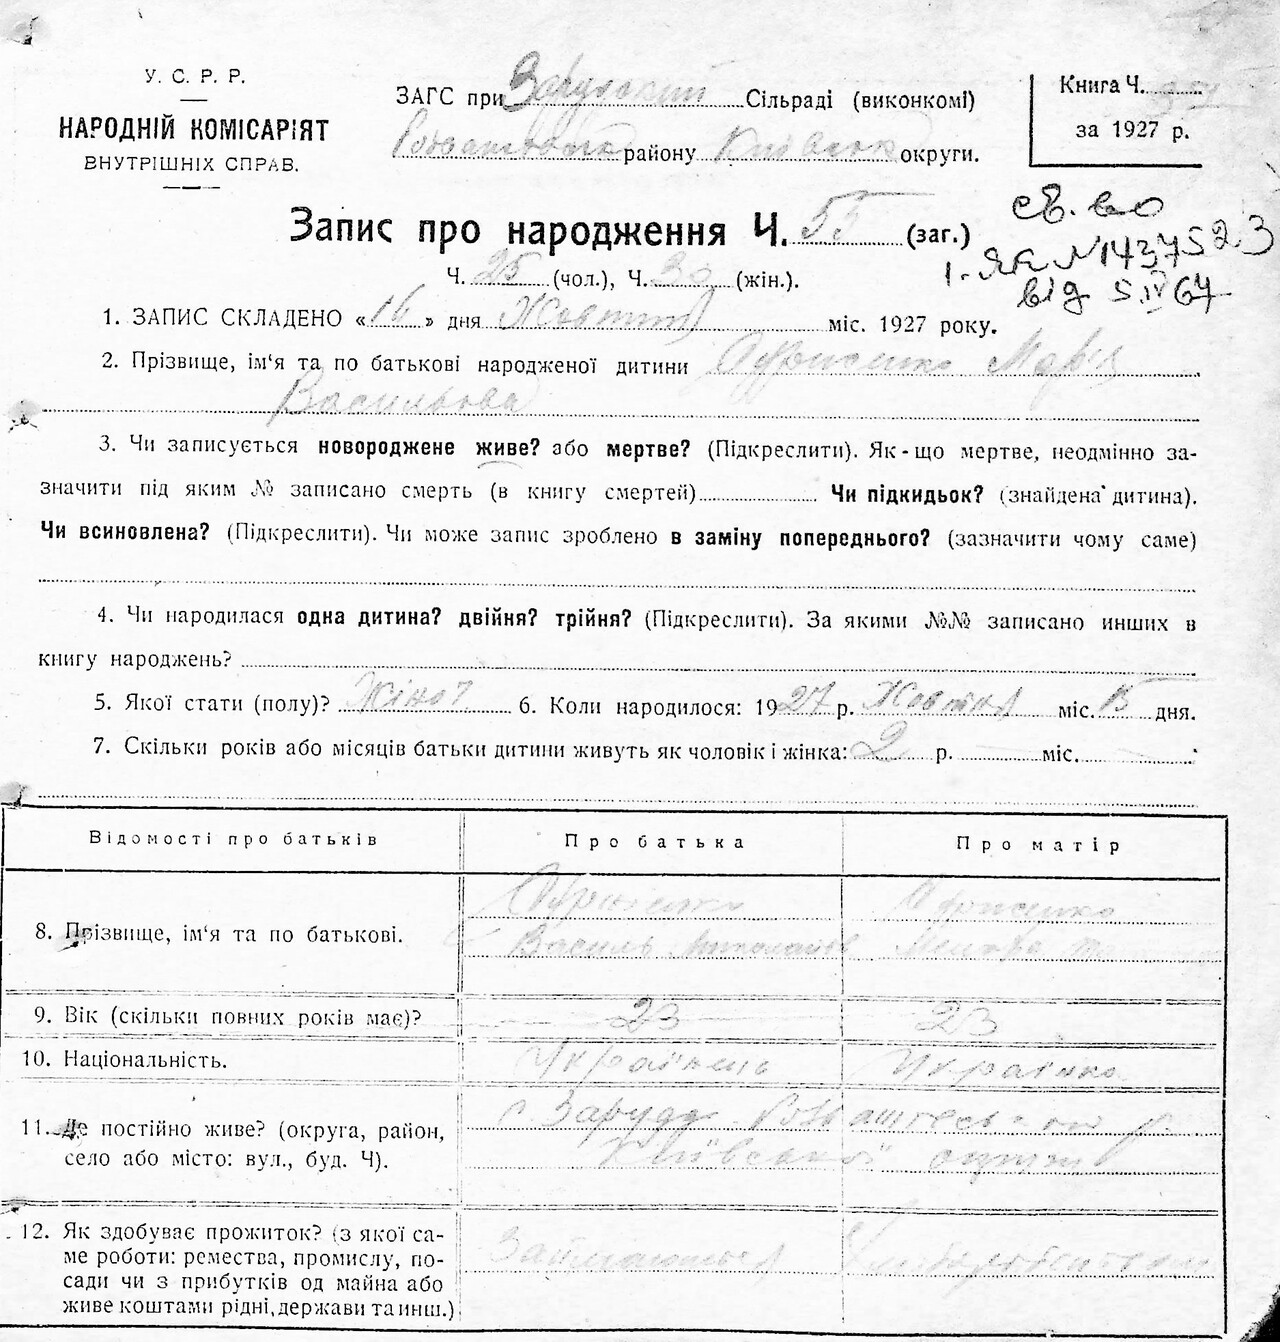 У. С. Р. Р.
НАРОДНІЙ КОМІСАРІЯТ
ВНУТРІШНІХ СПРАВ.
ЗАГС при Зарудский Сільраді (виконкомі)
району Київськ округи.
Книга Ч.
за 1927 р.
Запис про народження Ч. 55 (заг.)
Ч. 25 (чол.), Ч. 30 (жін.).
св. во
1-ЯК N 1437523
від 5.IV 67
1. ЗАПИС СКЛАДЕНО «16» дня Жовтня міс. 1927 року.
2. Прізвище, ім‘я та по батькові народженої дитини Марія
Васильовна
3. Чи записується новороджене живе? або мертве? (Підкреслити). Як-що мертве, неодмінно за-
значити під яким № записано смерть (в книгу смертей) Чи підкидьок? (знайдена дитина).
Чи всиновлена? (Підкреслити). Чи може запис зроблено в заміну попереднього? (зазначити чому саме)
4. Чи народилася одна дитина? двійня? трійня? (Підкреслити). За якими №№ записано инших в
книгу народжень?
5. Якої стати (полу)? Жіноч 6. Коли народилося: 1927 р. Жовтня міс. 15 дня.
7. Скільки років або місяців батьки дитини живуть як чоловік і жінка: 2 р. міс.
Відомості про батьків
Про батька
Про матір
8. Прізвище, ім‘я та по батькові.
Василь Николаїв
9. Вік (скільки повних років має)? 23 23
10. Національність. Українець Українка
11. Де постійно живе? (округа, район,
село або місто: вул., буд. Ч).
с. Зарудд
Київської округи
12. Як здобуває прожиток? (з якої са-
ме роботи: ремества, промислу, по-
сади чи з прибутків од майна або
живе коштами рідні, держави та инш.)
Займаються